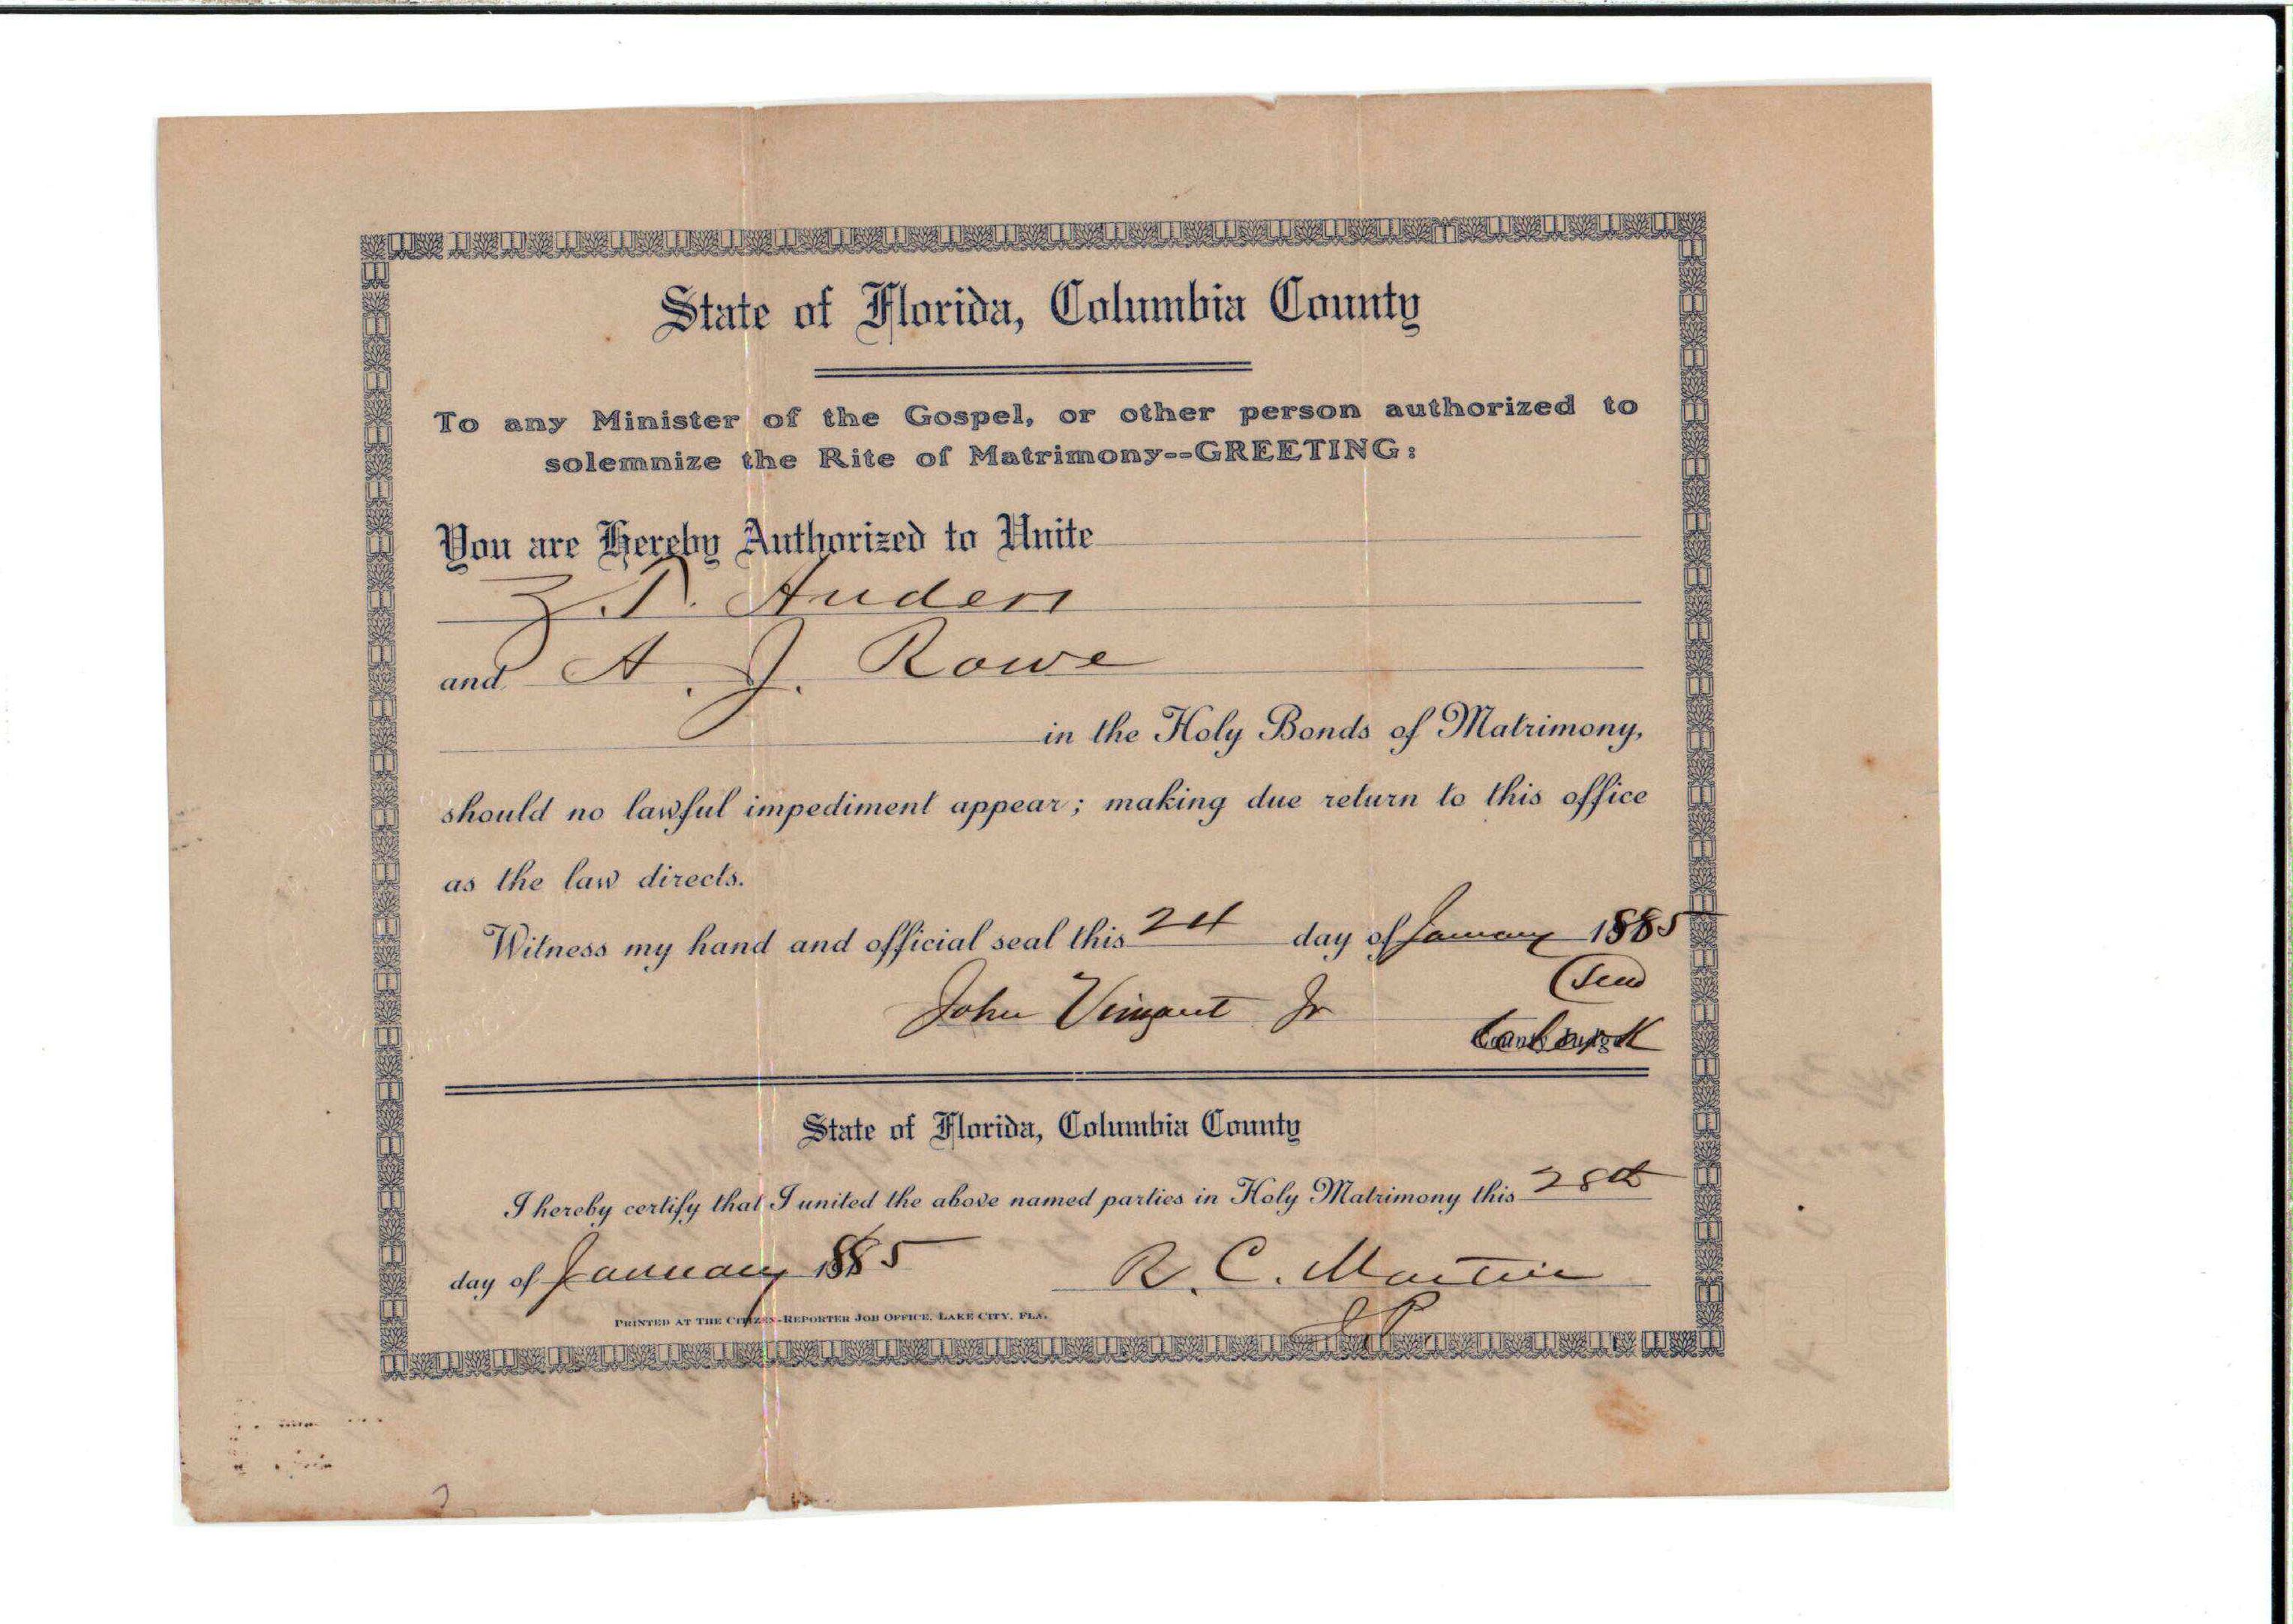 State of Florida, Columbia County
To any Minister of the Gospel, or other person authorized to
solemnize the Rite of Matrimony--GREETING:
You are Hereby Authorized to Unite
Z. T. Auden
and A. J. Rowe
in the Holy Bonds of Matrimony,
should no lawful impediment appear; making due return to this office
as the law directs.
Witness my hand and official seal this 24 day of January 1885
(Seal
John Vinzant Jr
Co Clerk
State of Florida, Columbia County
I hereby certify that I united the above named parties in Holy Matrimony this 28th
day of January 1885 R. C. Martin
JP
PRINTED AT THE CITIZEN-REPORTER JOB OFFICE, LAKE CITY, FLA.